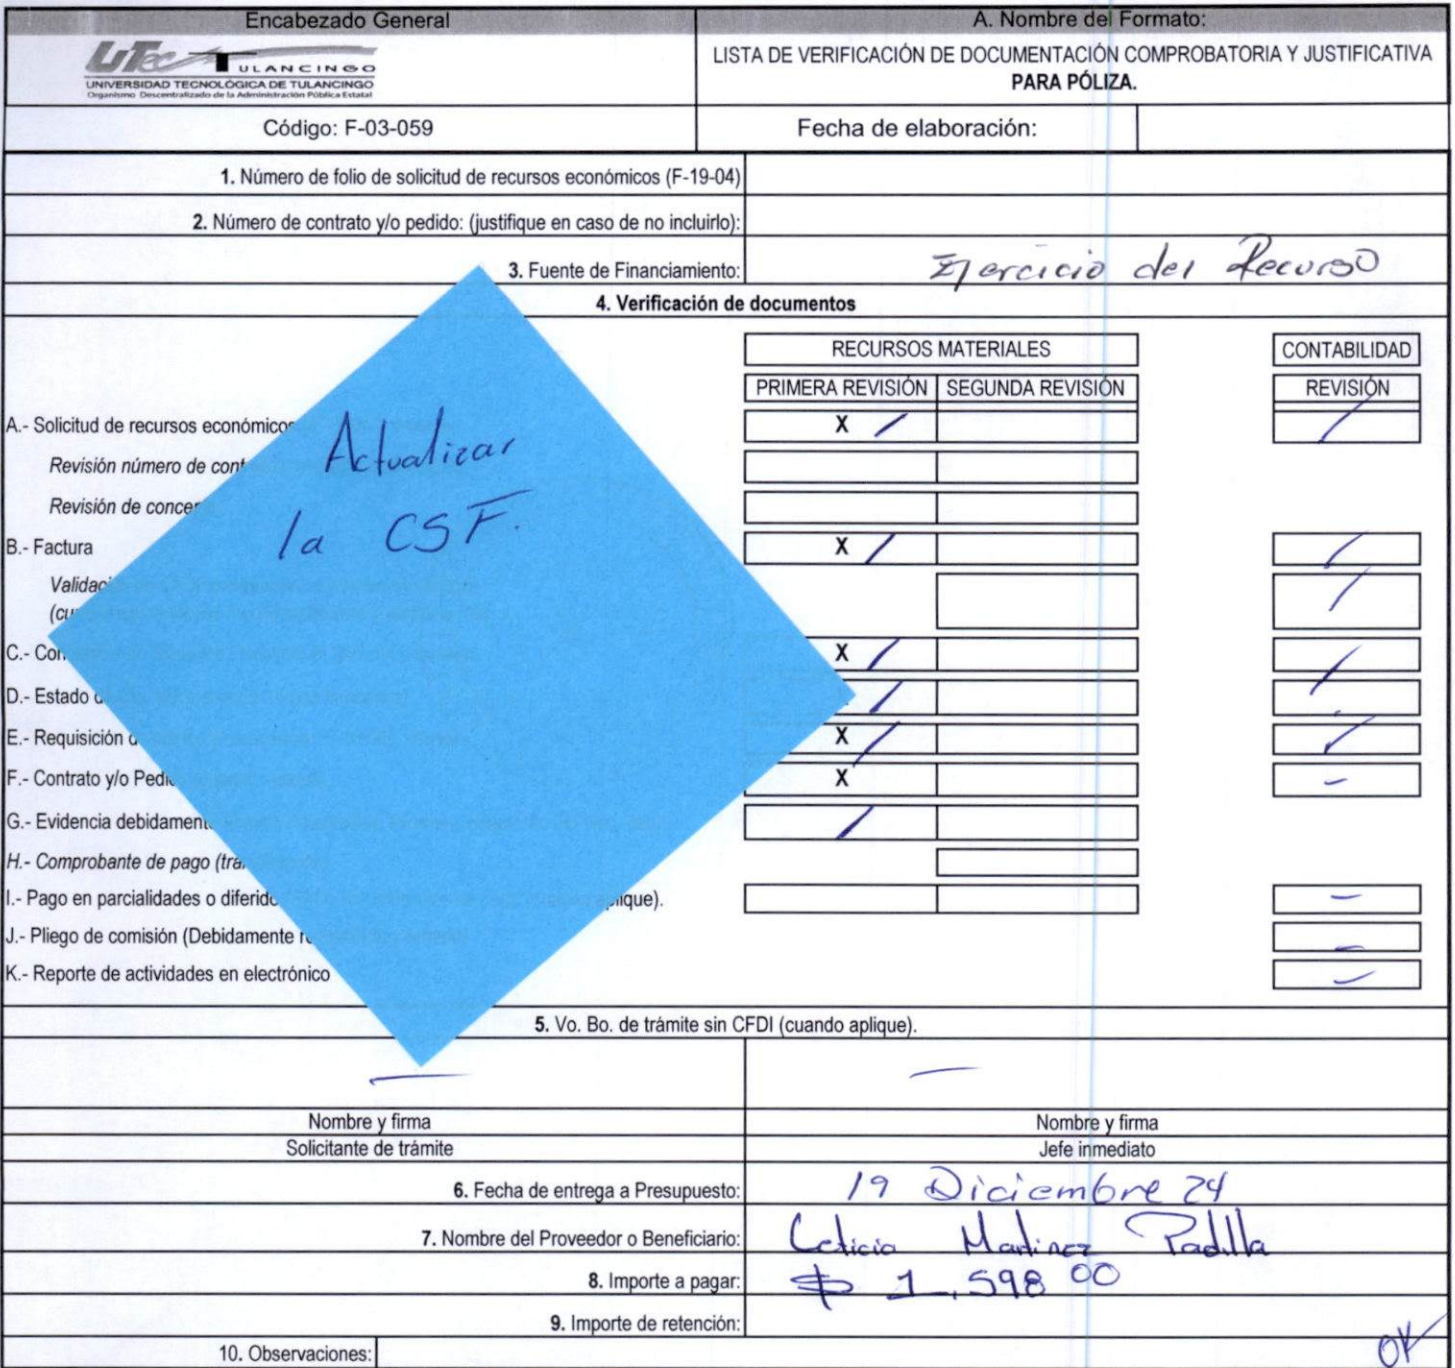 Encabezado General
A. Nombre del Formato:
UTec TULANCINGO
UNIVERSIDAD TECNOLÓGICA DE TULANCINGO
Organismo Descentralizado de la Administración Pública Estatal
LISTA DE VERIFICACIÓN DE DOCUMENTACIÓN COMPROBATORIA Y JUSTIFICATIVA
PARA PÓLIZA.
Código: F-03-059
Fecha de elaboración:
1. Número de folio de solicitud de recursos económicos (F-19-04)
2. Número de contrato y/o pedido: (justifique en caso de no incluirlo):
3. Fuente de Financiamiento: Ejercicio del Recurso
4. Verificación de documentos
RECURSOS MATERIALES
CONTABILIDAD
PRIMERA REVISIÓN SEGUNDA REVISIÓN
REVISIÓN
A.- Solicitud de recursos económicos X
Revisión número de
Revisión de
B.- Factura X
C.- X
D.- Estado
E.- Requisición X
F.- Contrato y/o X
G.- Evidencia
H.- Comprobante de pago
I.- Pago en parcialidades o
J.- Pliego de comisión (Debidamente
K.- Reporte de actividades en electrónico
Actualizar
la CSF.
5. Vo. Bo. de trámite sin CFDI (cuando aplique).
Nombre y firma
Nombre y firma
Solicitante de trámite
Jefe inmediato
6. Fecha de entrega a Presupuesto: 19 Diciembre 24
7. Nombre del Proveedor o Beneficiario: Leticia Martinez Padilla
8. Importe a pagar: $ 1,598 00
9. Importe de retención:
10. Observaciones:
OK